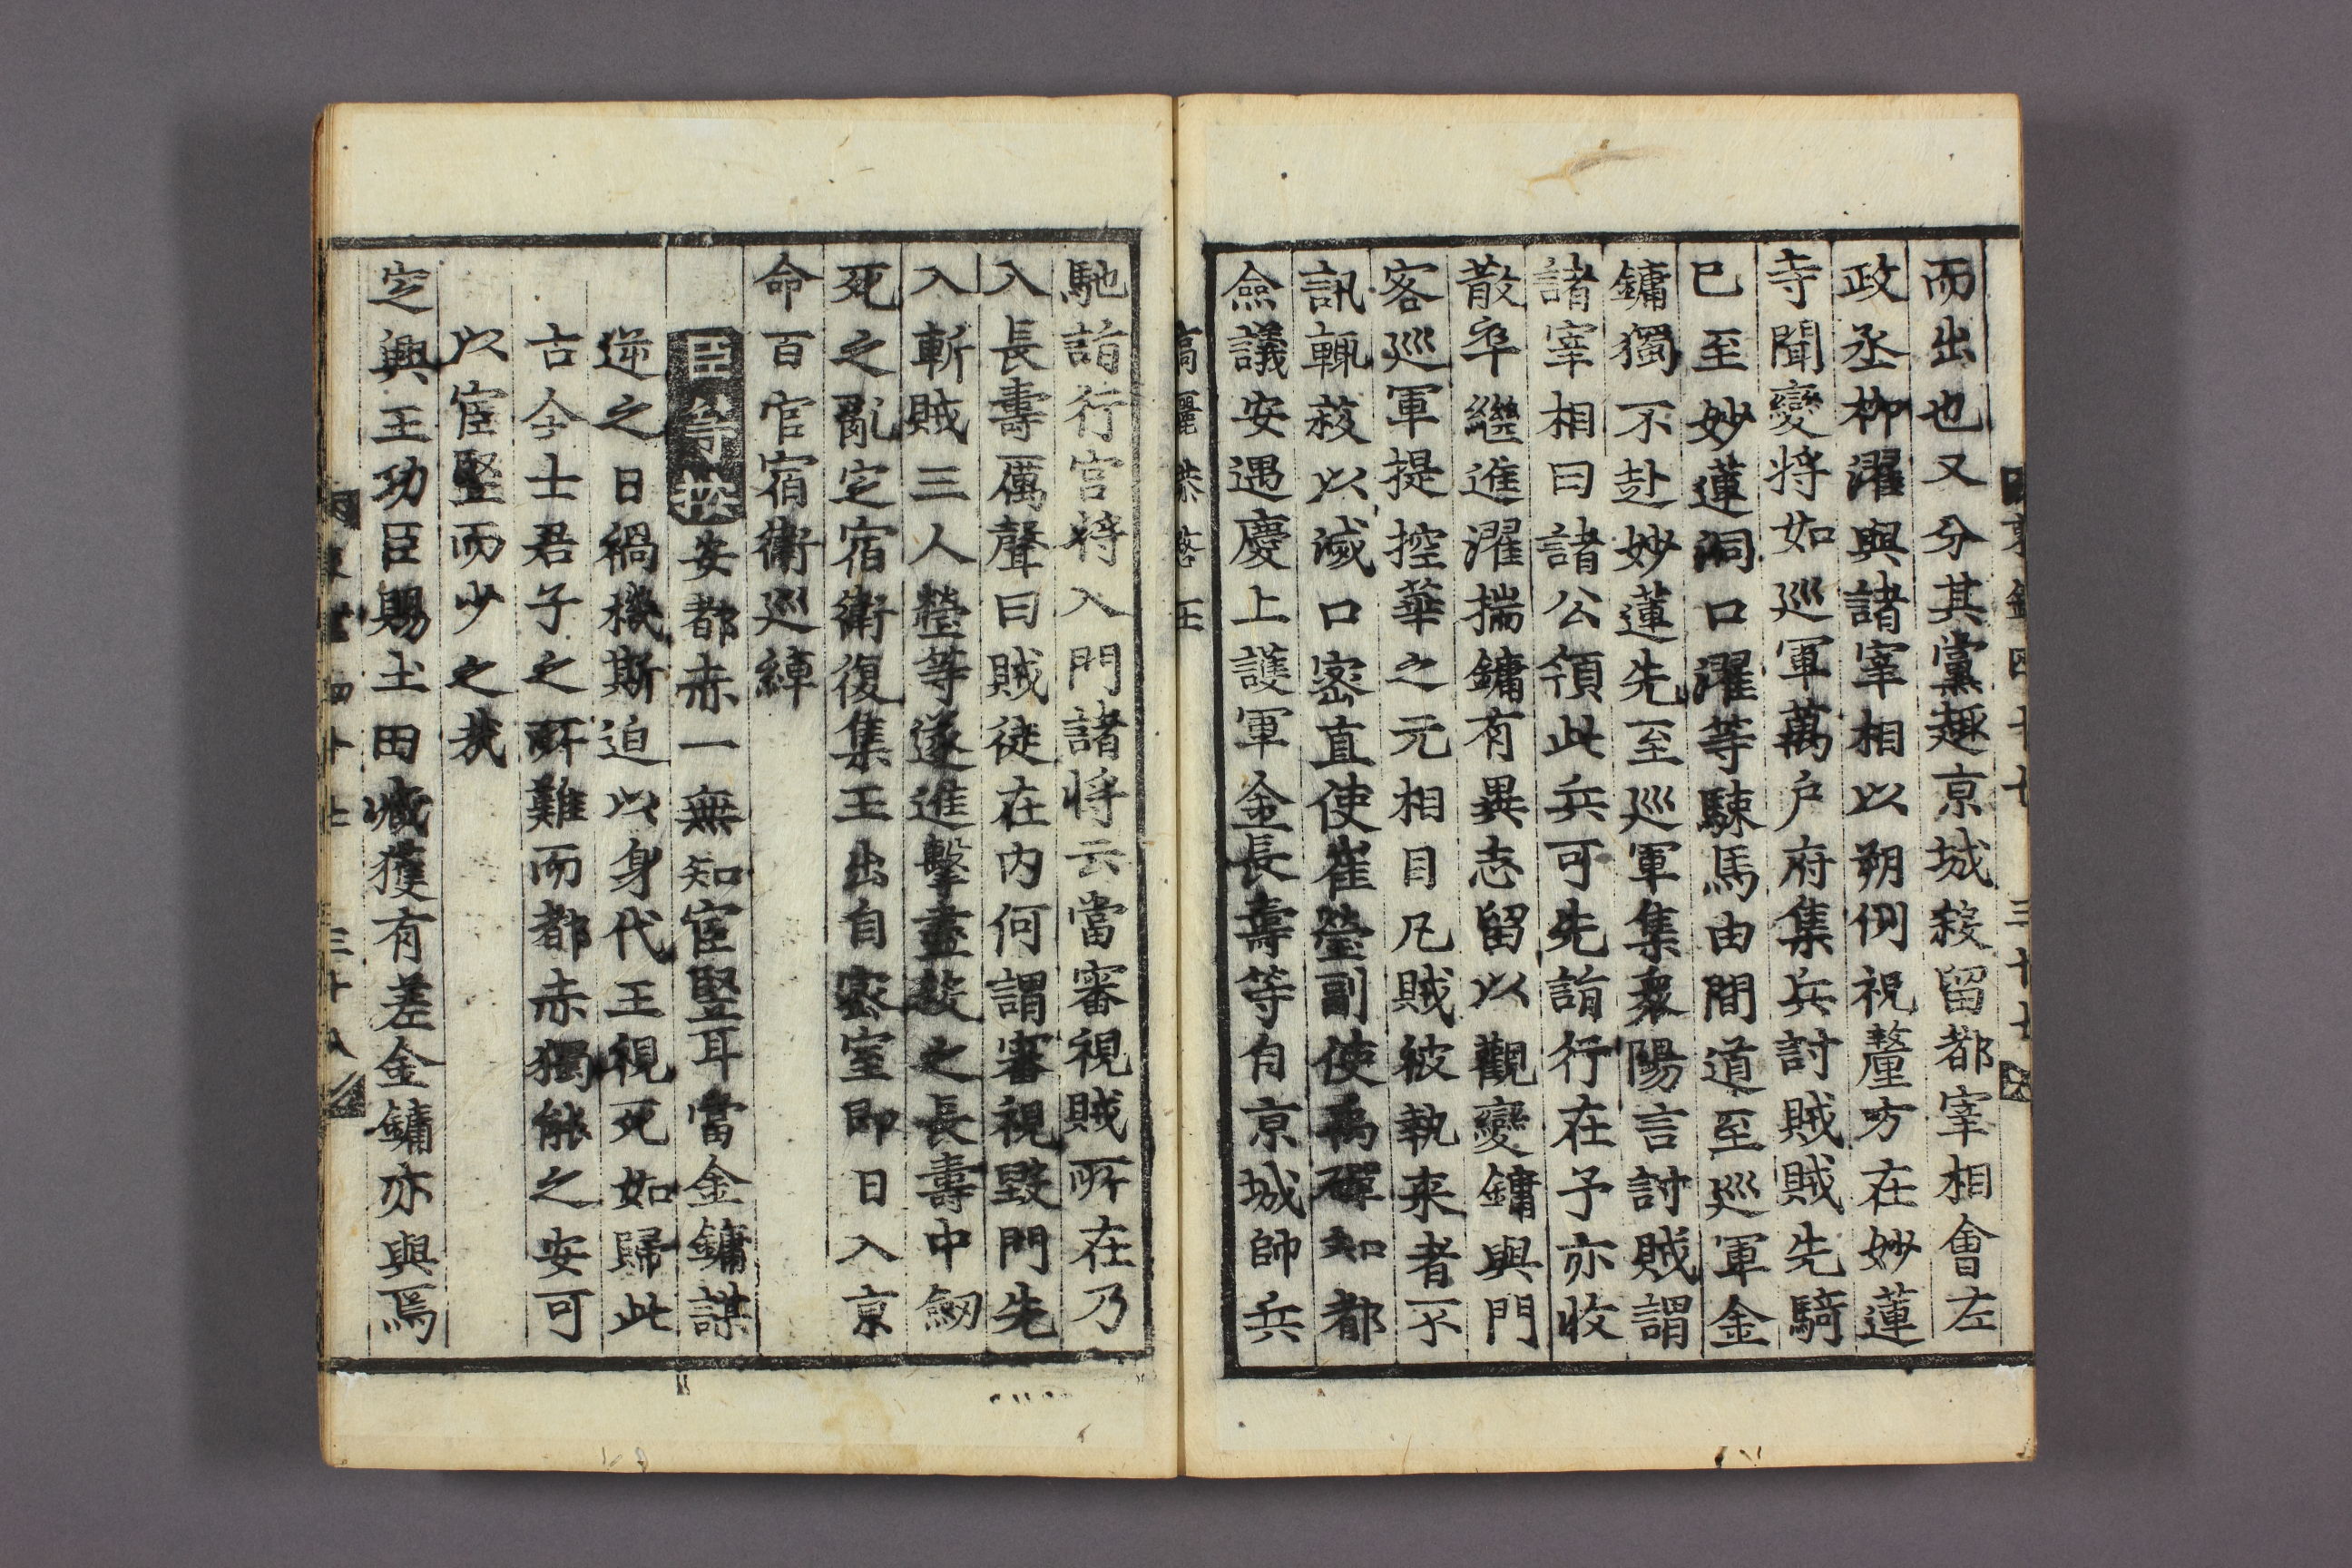 而出也又分其黨趣京城殺留都宰相會左
政丞柳濯與諸宰相以朔例祝釐方在妙蓮
寺聞變將如巡軍萬戶府集兵討賊賊先騎
已至妙蓮洞口濯等駷馬由間道至巡軍金
鏞獨不赴妙蓮先至巡軍集衆陽言討賊謂
諸宰相曰諸公領此兵可先詣行在予亦收
散卒繼進濯揣鏞有異志留以觀變鏞與門
客巡軍提控華之元相目凡賊被執来者不
訊輒殺以滅口密直使崔瑩副使禹磾知都
僉議安遇慶上護軍金長壽等自京城帥兵
高麗 恭愍王
馳詣行宮將入門諸將云當審視賊所在乃
入長壽厲聲曰賊徒在内何謂審視毀門先
入斬賊三人瑩等遂進擊盡殺之長壽中劒
死之亂定宿衛復集王出自密室即日入京
命百官宿衛巡綽
臣等按安都赤一無知宦竪耳當金鏞謀
逆之日禍機斯迫以身代王視死如歸此
古今士君子之所難而都赤獨能之安可
以宦竪而少之哉
定興王功臣賜土田臧獲有差金鏞亦與焉